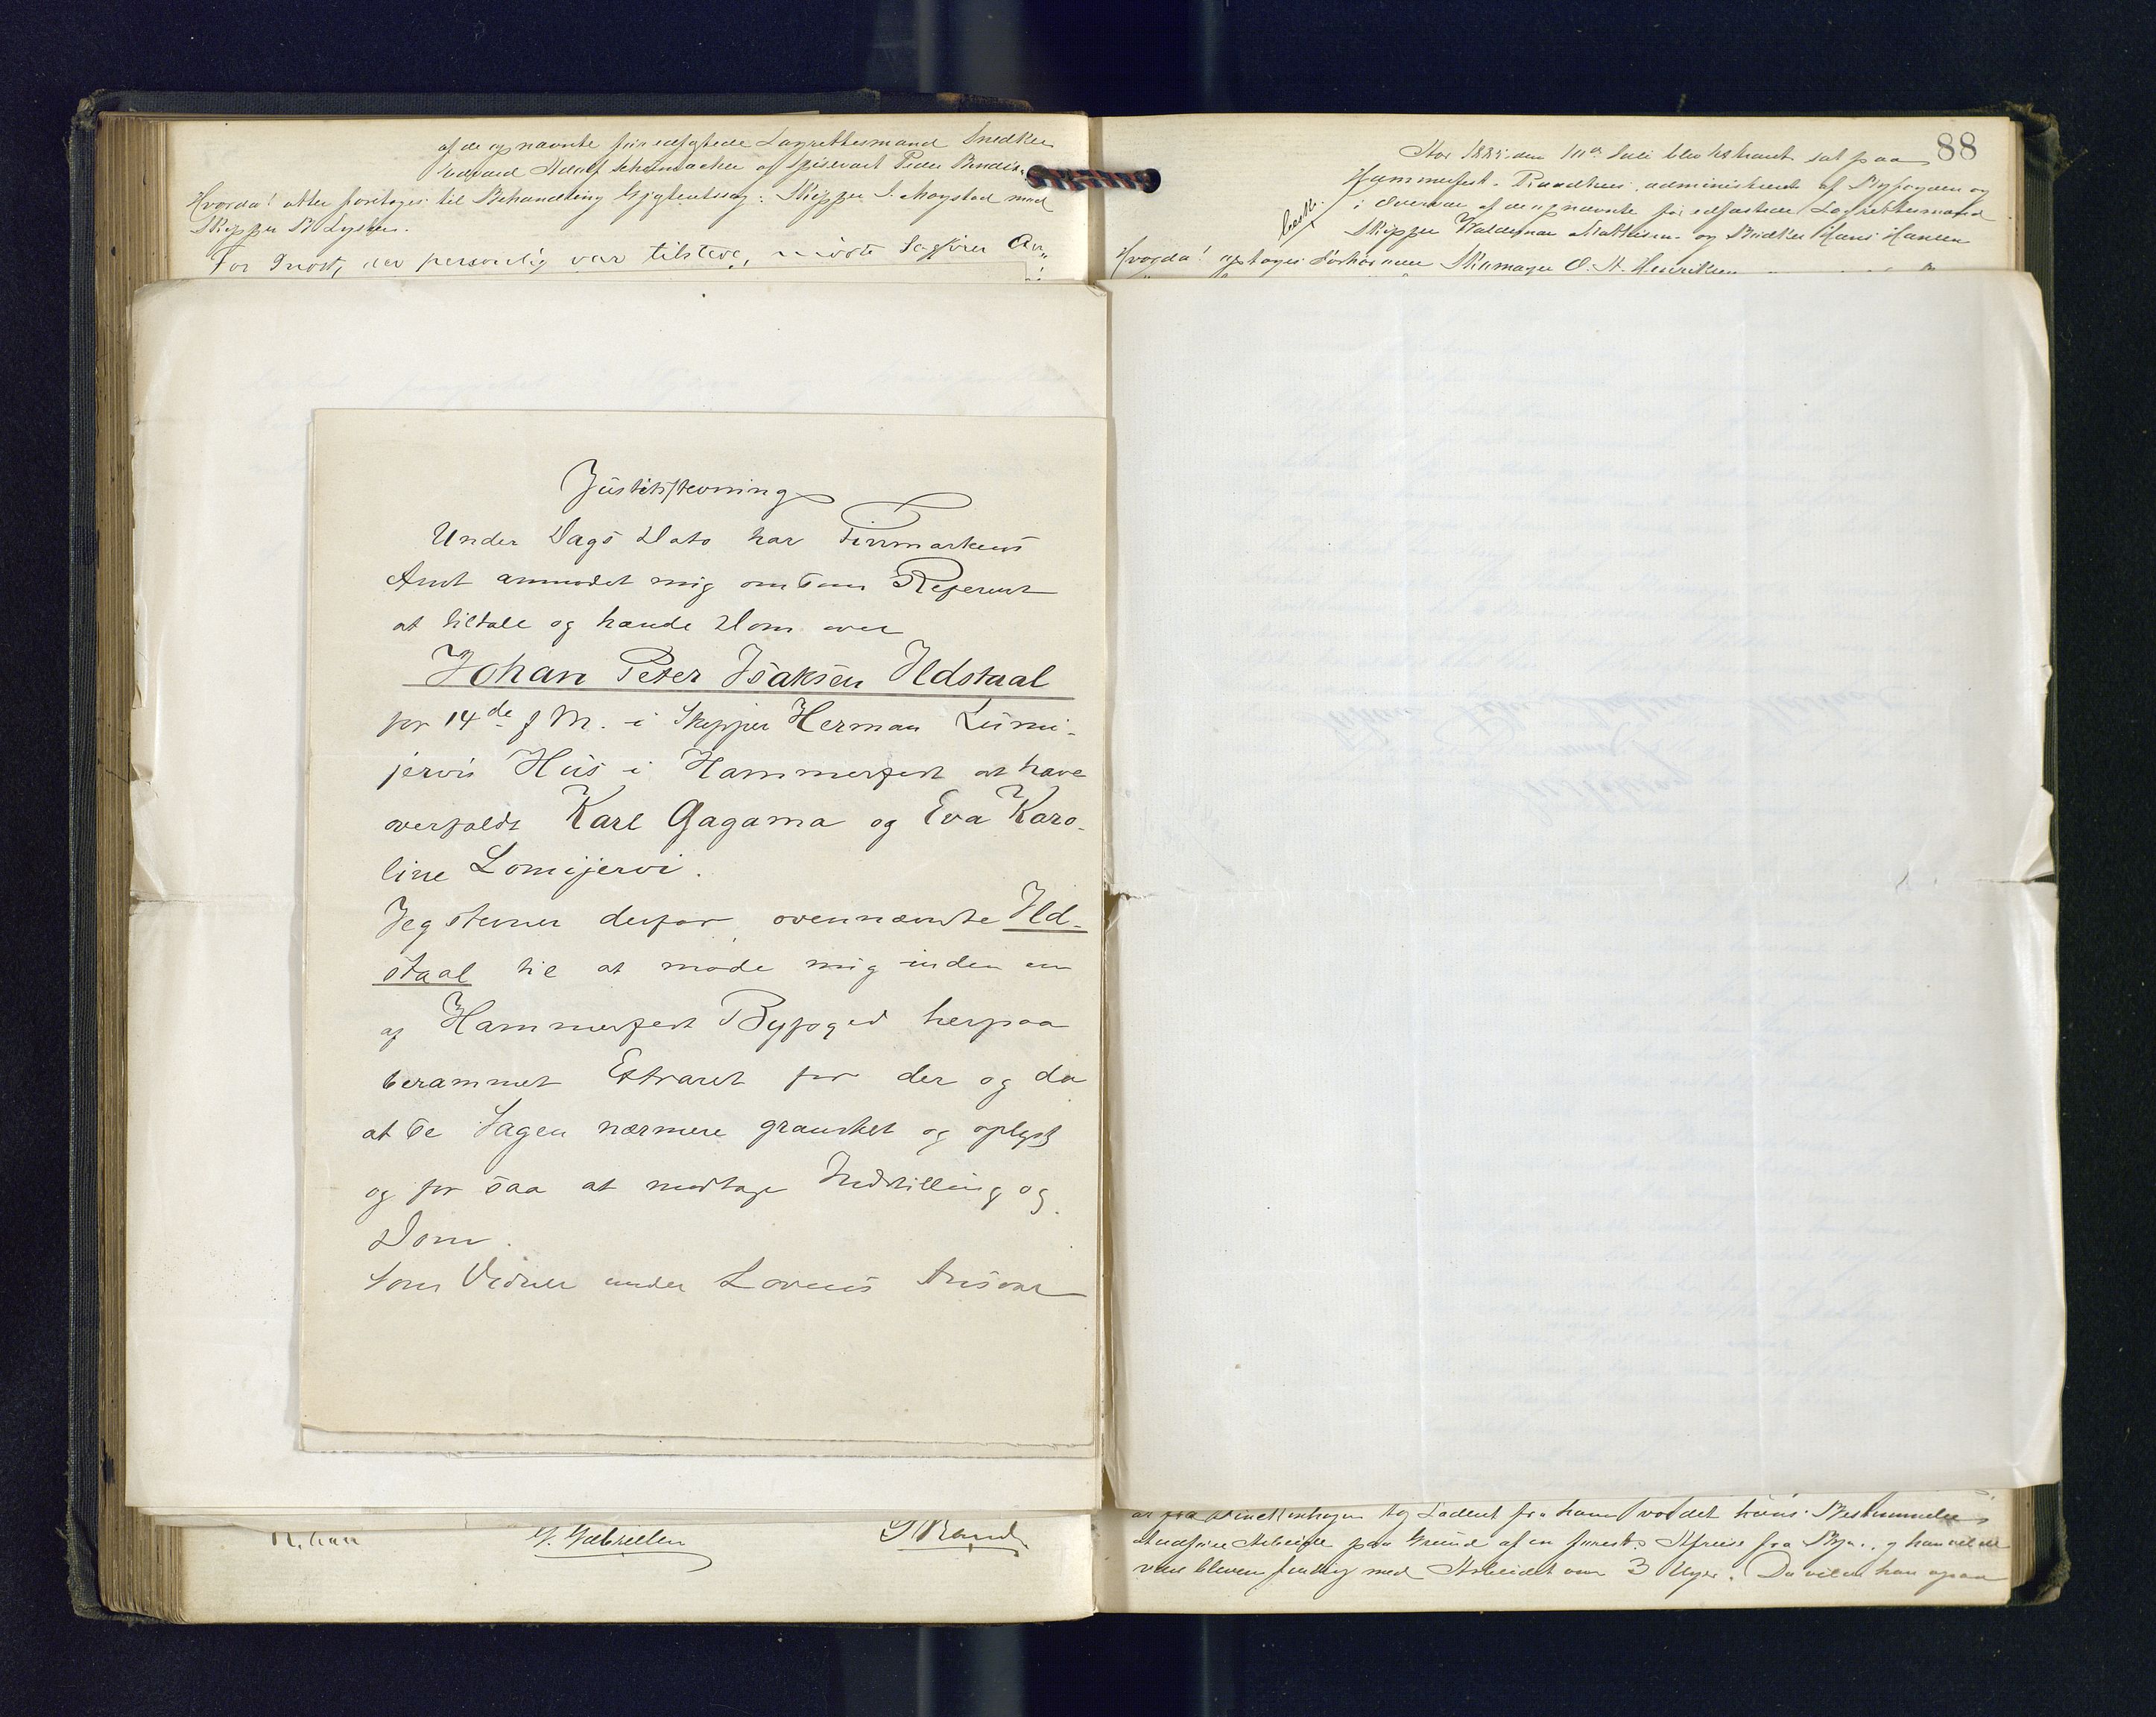 af de opnævnte før edfæstede Lagrettesmænd Snedker
Edvard Adolf Schumacher og Spisevært Peder Bendix-
Hvorda! atter foretoges til Behandling Gjæsteretssag: Skipper J. Mogstad mod
Skipper B Lysken.
For Indst, der personlig var tilstede, mødte Sagfører
88
Aar 1885 den 10de Juli blev Extraret sat paa
Hammerfest Raadhus, administreret af Byfogden og
i Overvær af de opnævnte før edfæstede Lagrettesmænd
Skipper Waldemar Mathisen og Snedker Hans Hansen
Hvorda! optoges Forhør over Skomager O. A. Henriksen
Justitsstevning
Under Dags Dato har Finmarkens
Amt anmodet mig om som Referent
at tiltale og hænde Dom over
Johan Peter Isaksen Ildstaal
for 14de f M. i Skipper Herman Lumi-
jervis Hus i Hammerfest at have
overfaldt Karl Gagama og Eva Karo-
line Lomijervi.
Jeg stevner derfor ovennævnte Ild-
staal til at møde mig inden en
af Hammerfest Byfoged herpaa
berammet Extraret for der og da
at se Sagen nærmere gransket og oplyst
og for saa at modtage Indstilling og
Dom.
Som Vidner under Lovens Ansvar
G. Gabrielsen
Arbeide paa Grund af en forest. Afreise fra Byen, og han vilde
være bleven færdig med Arbeidet om 3 Uger. Da vilde han ogsaa